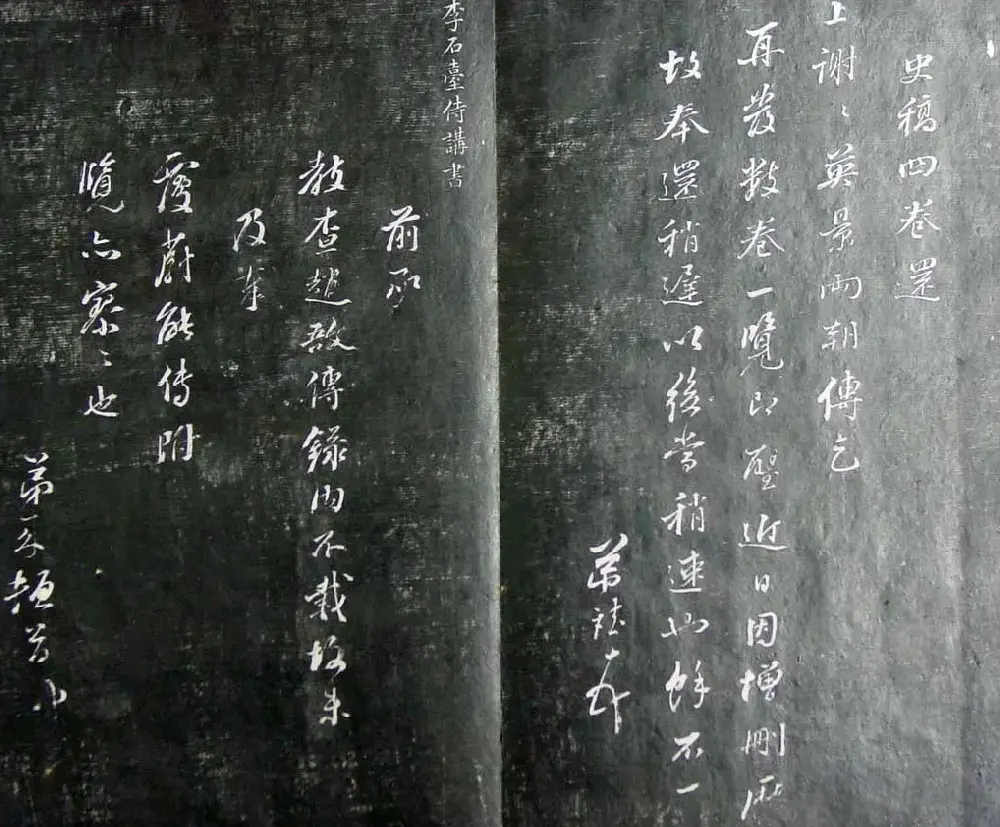 史稿四卷還
上謝〻英景兩朝傳乞
再發數卷一覽即璧近日因增刪
故奉還稍遲以後當稍速也餘不一
弟
李石臺侍講書
前承
教查趙敔傳錄內不載故未
及奉
覆蔚能傳附
覽亦察〻也
弟頓首